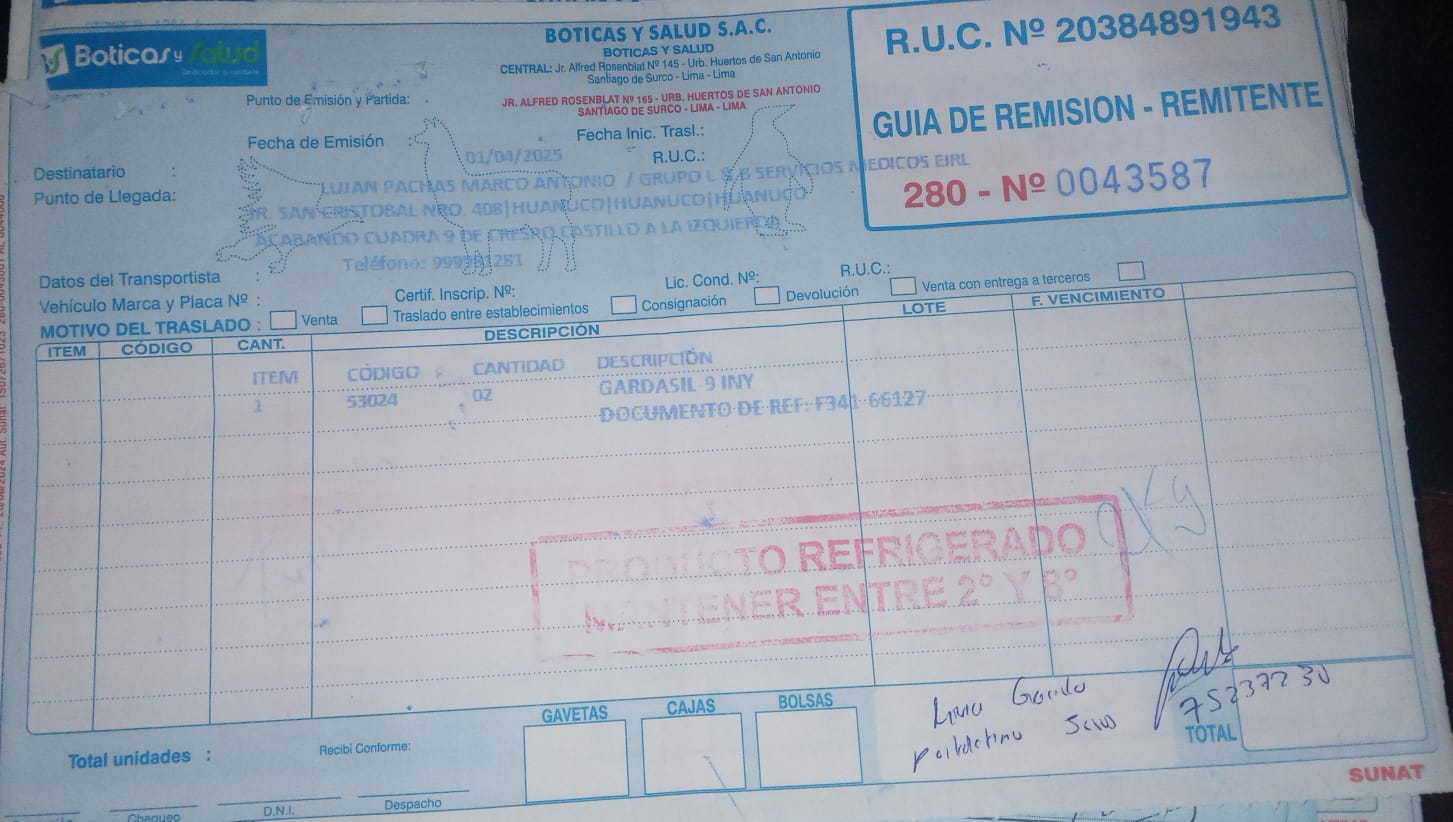 Boticas y Salud
BOTICAS Y SALUD S.A.C.
BOTICAS Y SALUD
CENTRAL: Jr. Alfred Rosenblat Nº 145 - Urb. Huertos de San Antonio
Santiago de Surco - Lima - Lima
Punto de Emisión y Partida:
JR. ALFRED ROSENBLAT Nº 165 - URB. HUERTOS DE SAN ANTONIO
SANTIAGO DE SURCO - LIMA - LIMA
R.U.C. Nº 20384891943
GUIA DE REMISION - REMITENTE
280 - Nº 0043587
Fecha de Emisión
Fecha Inic. Trasl.:
01/04/2025
R.U.C.:
Destinatario :
LUJAN PACHAS MARCO ANTONIO / GRUPO L & G SERVICIOS MEDICOS EIRL
Punto de Llegada:
JR. SAN CRISTOBAL NRO. 408|HUANUCO|HUANUCO|HUANUCO
ACABANDO CUADRA 9 DE CRESPO CASTILLO A LA IZQUIERDA
Teléfono: 999981281
Datos del Transportista :
Vehículo Marca y Placa Nº :
Certif. Inscrip. Nº:
Lic. Cond. Nº:
R.U.C.:
MOTIVO DEL TRASLADO : Venta Traslado entre establecimientos Consignación Devolución Venta con entrega a terceros
ITEM CÓDIGO CANT. DESCRIPCIÓN LOTE F. VENCIMIENTO
ITEM CÓDIGO CANTIDAD DESCRIPCIÓN
1 53024 02 GARDASIL 9 INY
DOCUMENTO DE REF: F341-66127
PRODUCTO REFRIGERADO
MANTENER ENTRE 2° Y 8°
75237230
GAVETAS CAJAS BOLSAS
TOTAL
Total unidades :
Recibí Conforme:
Chequeo D.N.I. Despacho
SUNAT